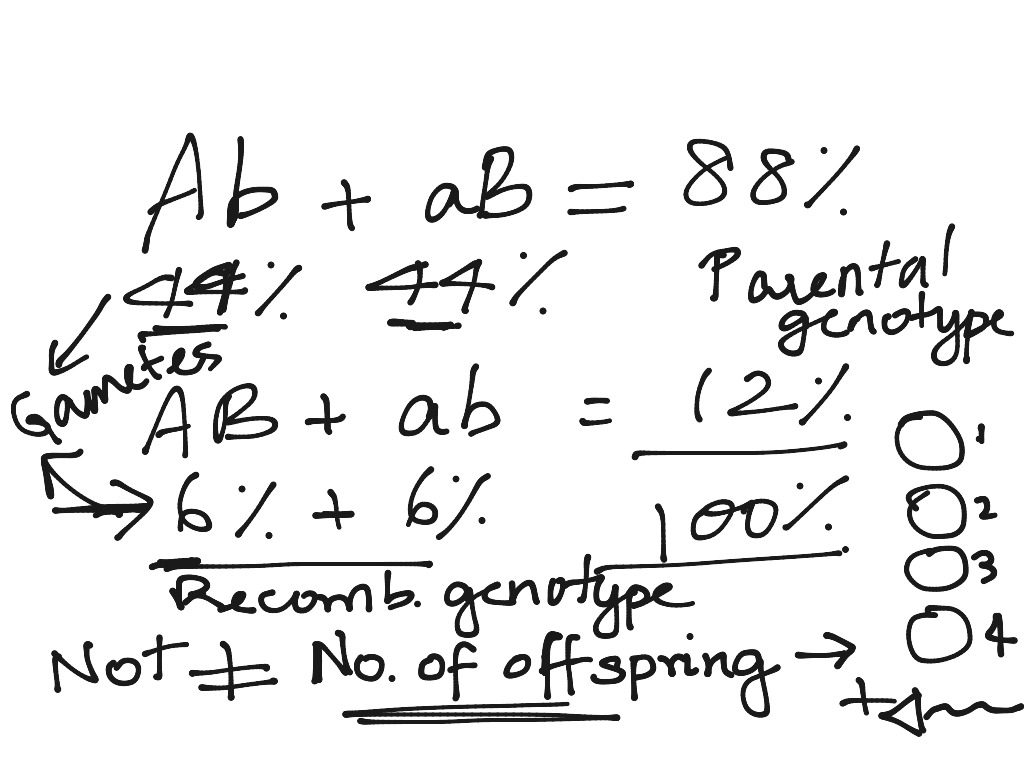 Ab + aB = 88%
44% 44% Parental
genotype
Gametes
AB + ab = 12%
6% + 6% 100%
1
2
3
4
Recomb. genotype
Not ≠ No. of offspring →
+